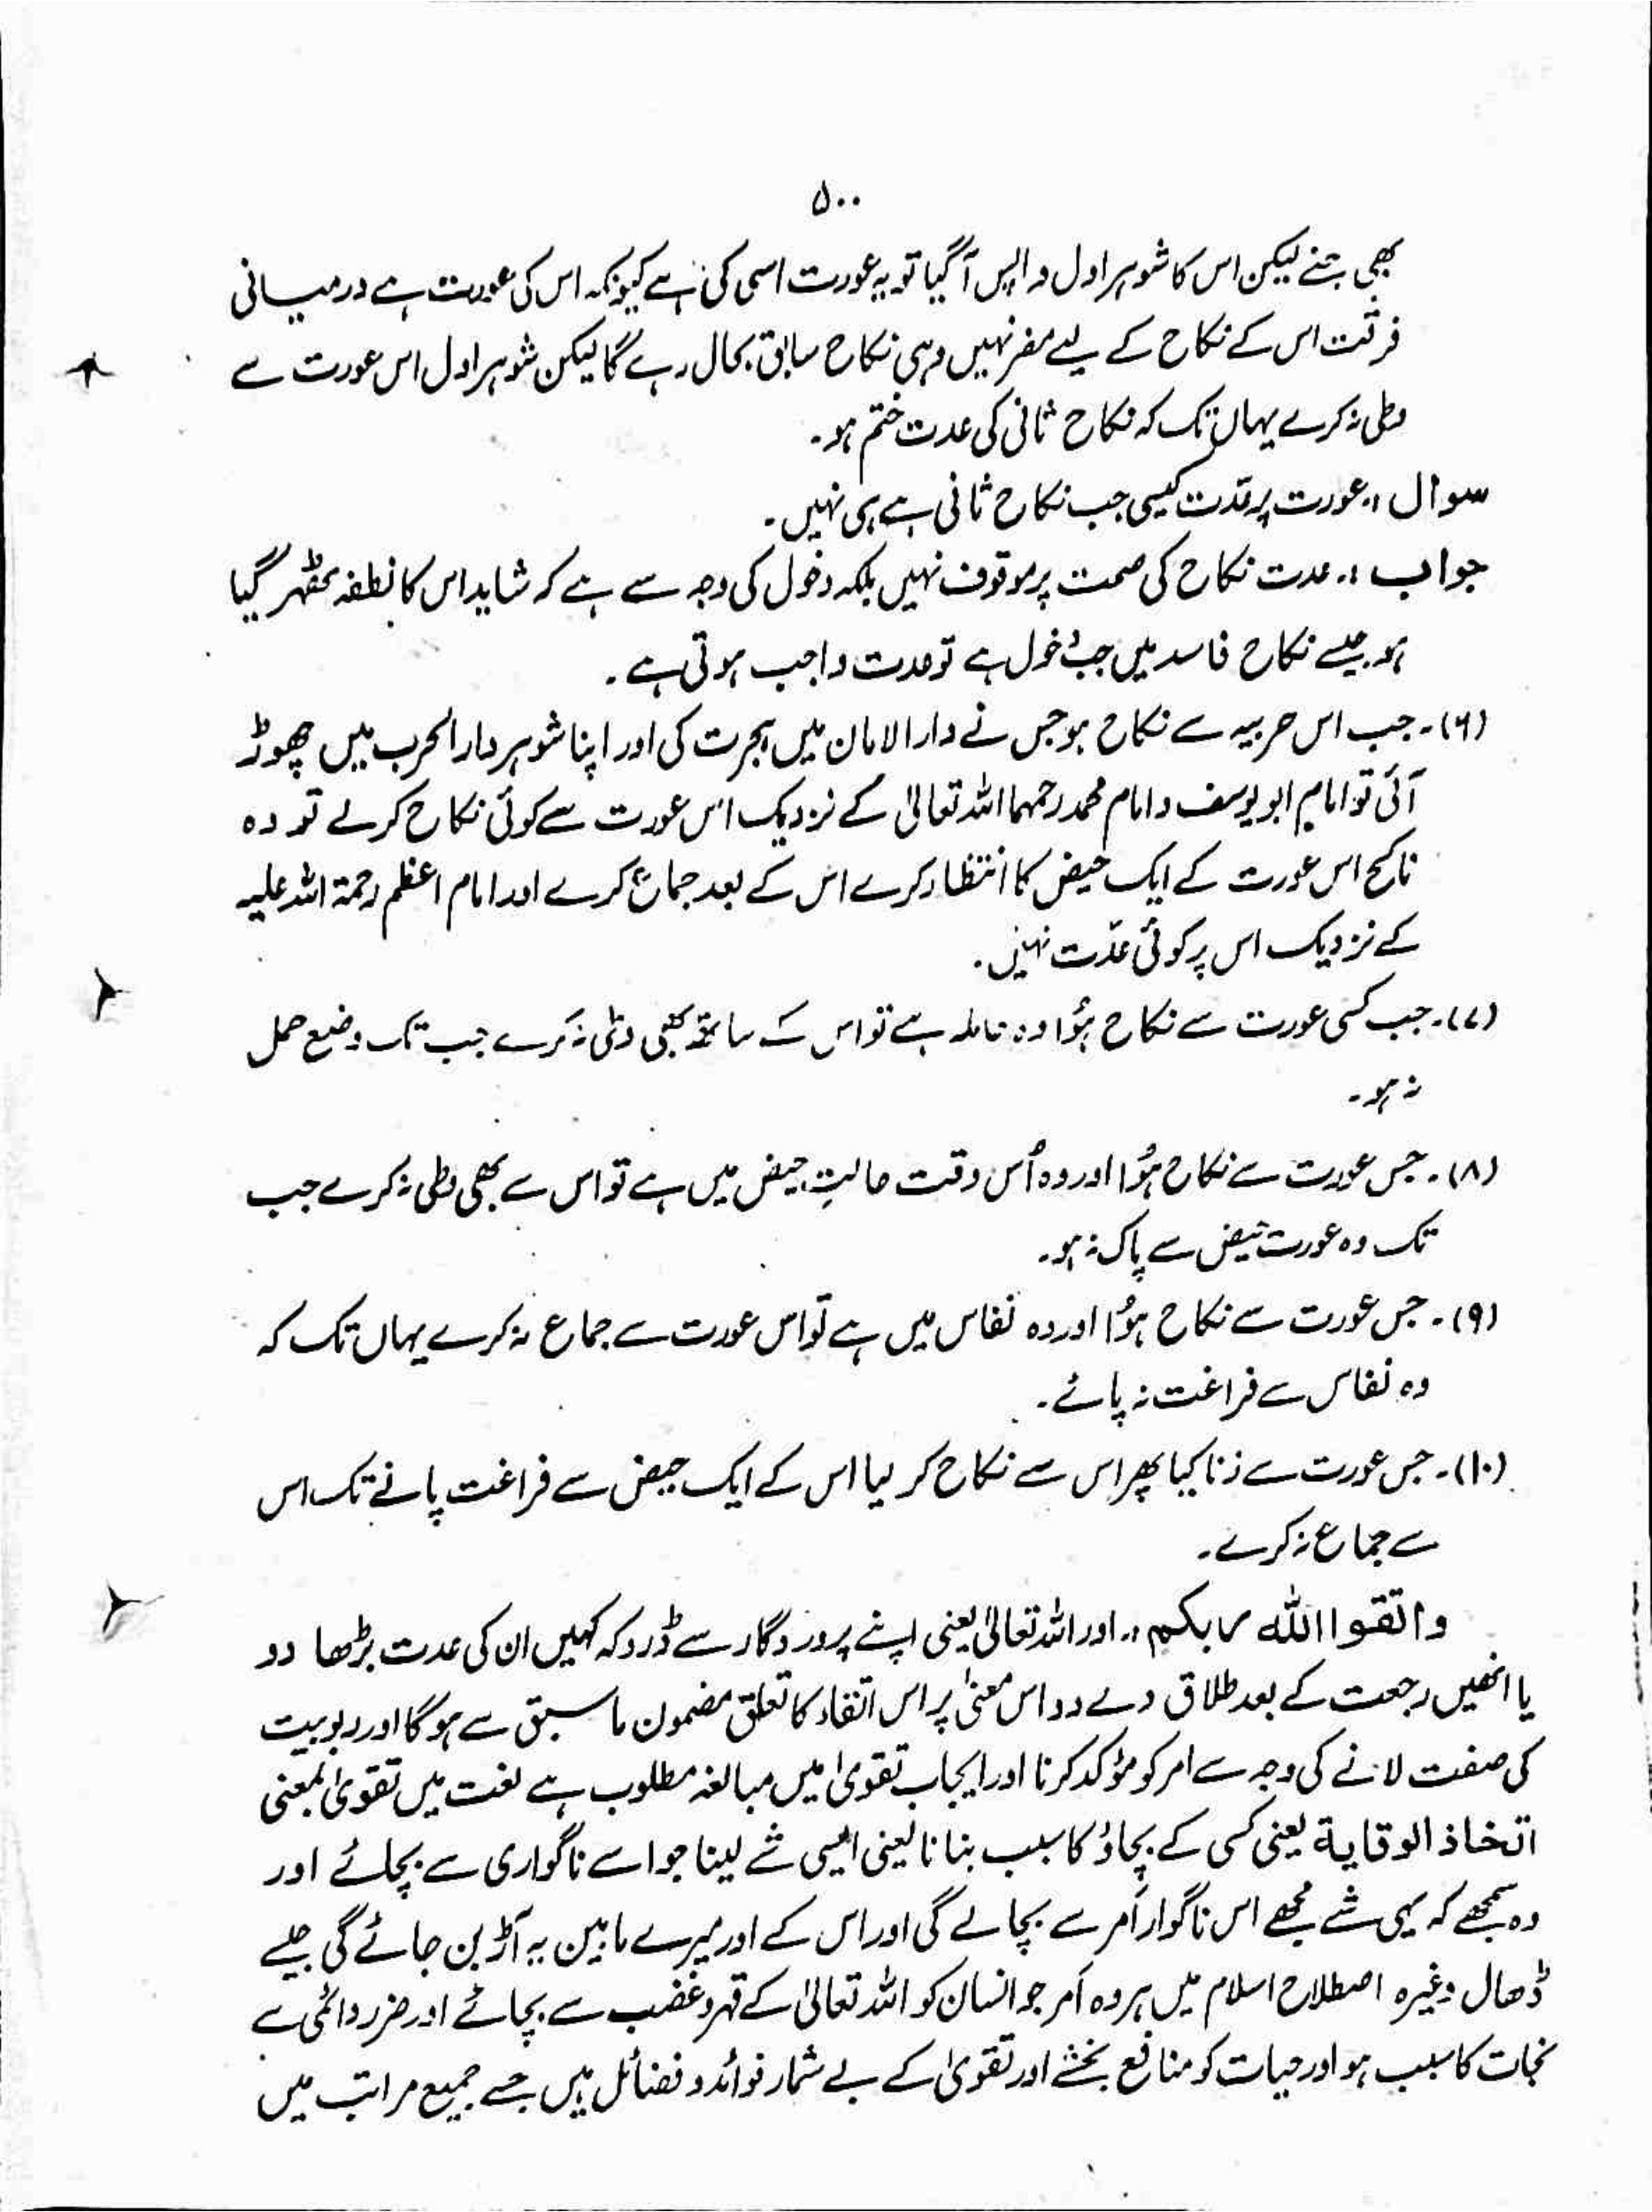 ۵۰۰
بھی جنے لیکن اس کا شوہر اول واپس آگیا تو یہ عورت اسی کی ہے کیونکہ اس کی عورت ہے درمیانی
فرقت اس کے نکاح کے لیے مضر نہیں وہی نکاح سابق بحال رہے گا لیکن شوہر اول اس عورت سے
وطی نہ کرے یہاں تک کہ نکاح ثانی کی عدت ختم ہو۔
سوال :۔ عورت پر عدت کیسی جب نکاح ثانی ہے ہی نہیں۔
جواب :۔ عدت نکاح کی صحت پر موقوف نہیں بلکہ دخول کی وجہ سے ہے کہ شاید اس کا نطفہ ٹھہر گیا
ہو جیسے نکاح فاسد میں جب دخول ہے تو عدت واجب ہوتی ہے۔
(۶)۔ جب اس حربیہ سے نکاح ہو جس نے دارالامان میں ہجرت کی اور اپنا شوہر دارالحرب میں چھوڑ
آئی تو امام ابو یوسف و امام محمد رحمہما اللہ تعالیٰ کے نزدیک اس عورت سے کوئی نکاح کرلے تو وہ
ناکح اس عورت کے ایک حیض کا انتظار کرے اس کے بعد جماع کرے اور امام اعظم رحمۃ اللہ علیہ
کے نزدیک اس پر کوئی عدّت نہیں۔
(۷)۔ جب کسی عورت سے نکاح ہؤا وہ حاملہ ہے تو اس کے ساتھ بھی وطی نہ کرے جب تک وضع حمل
نہ ہو۔
(۸)۔ جس عورت سے نکاح ہؤا اور وہ اُس وقت حالتِ حیض میں ہے تو اس سے بھی وطی نہ کرے جب
تک وہ عورت حیض سے پاک نہ ہو۔
(۹)۔ جس عورت سے نکاح ہؤا اور وہ نفاس میں ہے تو اس عورت سے جماع نہ کرے یہاں تک کہ
وہ نفاس سے فراغت نہ پائے۔
(۱۰)۔ جس عورت سے زنا کیا پھر اس سے نکاح کر لیا اس کے ایک حیض سے فراغت پانے تک اس
سے جماع نہ کرے۔
واتقوا اللہ ربکم :۔ اور اللہ تعالیٰ یعنی اپنے پروردگار سے ڈرو کہ کہیں ان کی عدت بڑھا دو
یا انھیں رجعت کے بعد طلاق دے دو اس معنیٰ پر اس اتقاء کا تعلق مضمون ماسبق سے ہوگا اور ربوبیت
کی صفت لانے کی وجہ سے امر کو مؤکد کرنا اور ایجاب تقویٰ میں مبالغہ مطلوب ہے لغت میں تقویٰ بمعنی
اتخاذ الوقایة یعنی کسی کے بچاؤ کا سبب بنانا یعنی ایسی شے لینا جو اسے ناگواری سے بچائے اور
وہ سمجھے کہ یہی شے مجھے اس ناگوار اَمر سے بچالے گی اور اس کے اور میرے مابین یہ آڑ بن جائے گی جیسے
ڈھال وغیرہ اصطلاح اسلام میں ہر وہ اَمر جو انسان کو اللہ تعالیٰ کے قہر و غضب سے بچائے اور ضرر دائمی سے
نجات کا سبب ہو اور حیات کو منافع بخشے اور تقویٰ کے بے شمار فوائد و فضائل ہیں جسے جمیع مراتب میں